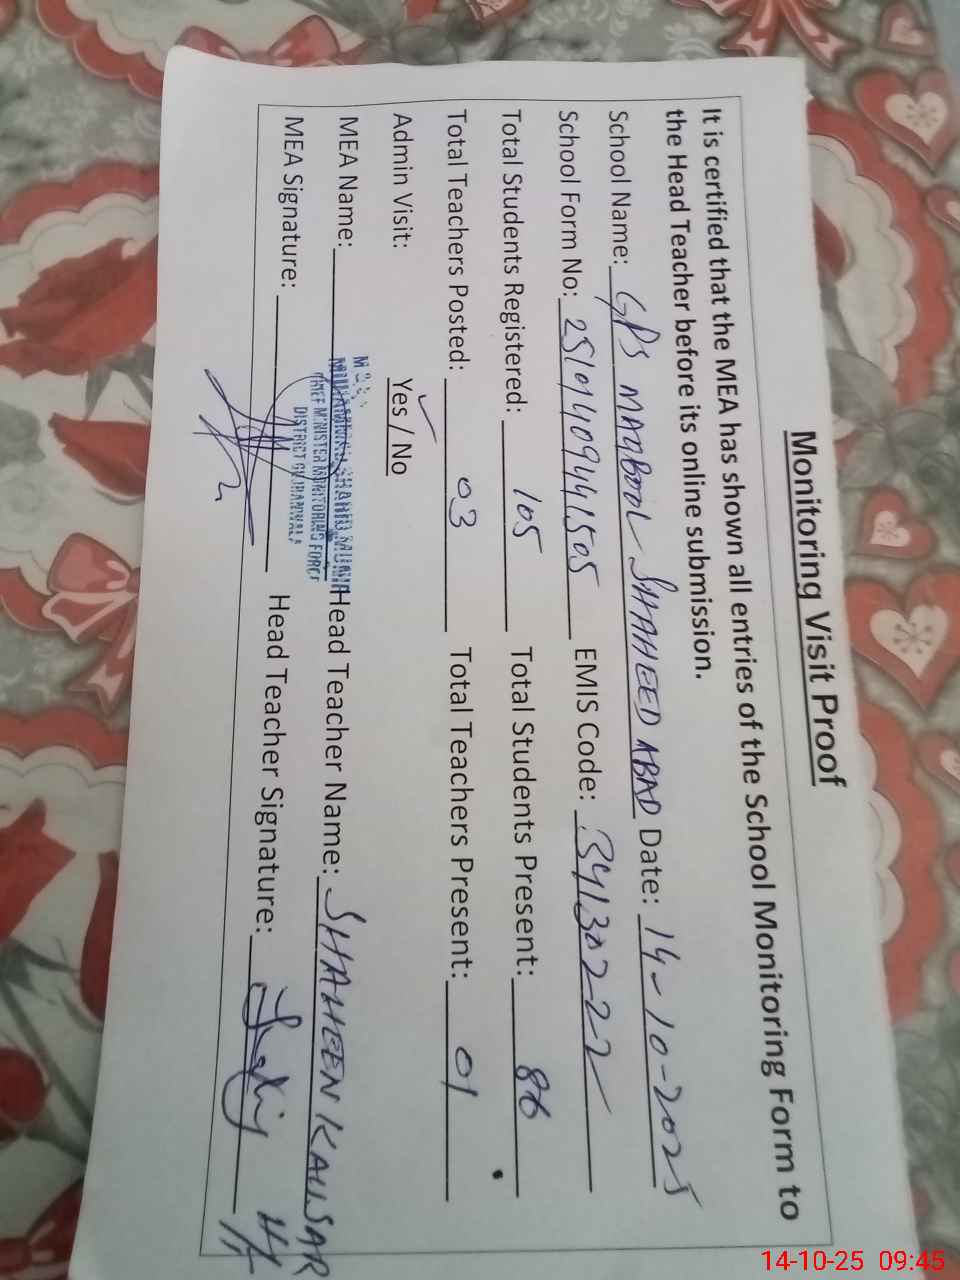 Monitoring Visit Proof
It is certified that the MEA has shown all entries of the School Monitoring Form to
the Head Teacher before its online submission.
School Name: GPS MAQBOOL SHAHEED ABAD Date: 14-10-2025
School Form No: 25101409441505 EMIS Code: 34130222
Total Students Registered: 105 Total Students Present: 86
Total Teachers Posted: 03 Total Teachers Present: 01
Admin Visit: Yes / No
MEA Name: MUHAMMAD SHAHID MUNIR Head Teacher Name: SHAHEEN KAUSAR
CHIEF MINISTER MONITORING FORCE
DISTRICT GUJRANWALA
MEA Signature: Head Teacher Signature:
14-10-25 09:45